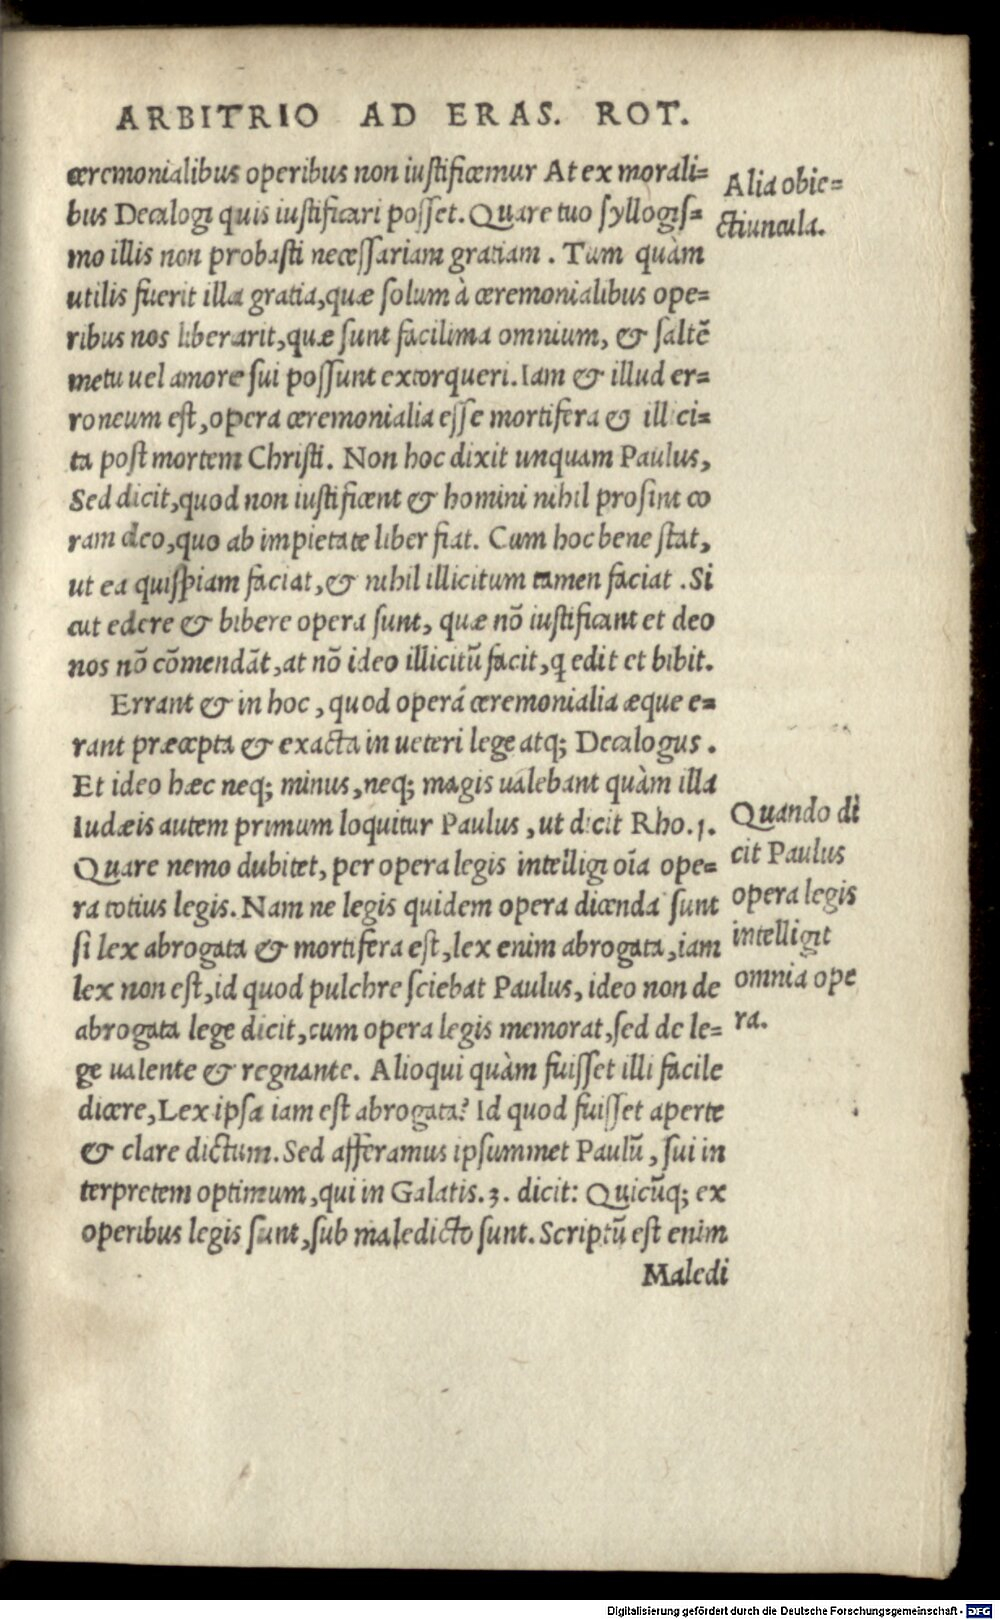 ARBITRIO AD ERAS. ROT.
ceremonialibus operibus non iustificemur At ex morali=
bus Decalogi quis iustificari posset. Quare tuo syllogis=
mo illis non probasti necessariam gratiam. Tum quàm
utilis fuerit illa gratia, quæ solum à ceremonialibus ope=
ribus nos liberarit, quæ sunt facilima omnium, & saltē
metu uel amore sui possunt extorqueri. Iam & illud er=
roneum est, opera ceremonialia esse mortifera & illici=
ta post mortem Christi. Non hoc dixit unquam Paulus,
Sed dicit, quod non iustificent & homini nihil prosint co
ram deo, quo ab impietate liber fiat. Cum hoc bene stat,
ut ea quispiam faciat, & nihil illicitum tamen faciat. Si
cut edere & bibere opera sunt, quæ nō iustificant et deo
nos nō cōmendāt, at nō ideo illicitū facit, q edit et bibit.
Errant & in hoc, quod operá ceremonialia æque e=
rant præcepta & exacta in ueteri lege atq; Decalogus.
Et ideo hæc neq; minus, neq; magis ualebant quàm illa
Iudæis autem primum loquitur Paulus, ut dicit Rho.1.
Quare nemo dubitet, per opera legis intelligi oīa ope=
ra totius legis. Nam ne legis quidem opera dicenda sunt
si lex abrogata & mortifera est, lex enim abrogata, iam
lex non est, id quod pulchre sciebat Paulus, ideo non de
abrogata lege dicit, cum opera legis memorat, sed de le=
ge ualente & regnante. Alioqui quàm fuisset illi facile
dicere, Lex ipsa iam est abrogata? Id quod fuisset aperte
& clare dictum. Sed afferamus ipsummet Paulū, sui in
terpretem optimum, qui in Galatis.3. dicit: Quicūq; ex
operibus legis sunt, sub maledicto sunt. Scriptū est enim
Maledi
Alia obie=
ctiuncula.
Quando di
cit Paulus
opera legis
intelligit
omnia ope
ra.
Digitalisierung gefördert durch die Deutsche Forschungsgemeinschaft - DFG